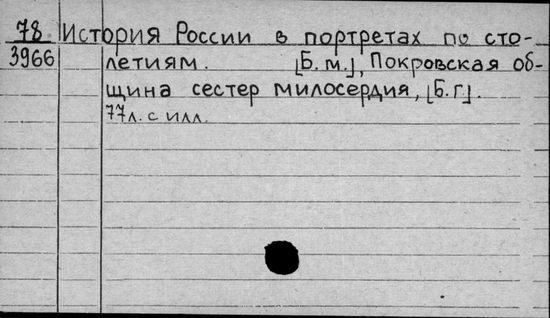 78 История России в портретах по сто-
3966 летиям. [Б.м.], Покровская об-
щина сестер милосердия, [Б.г].
77л. с илл.